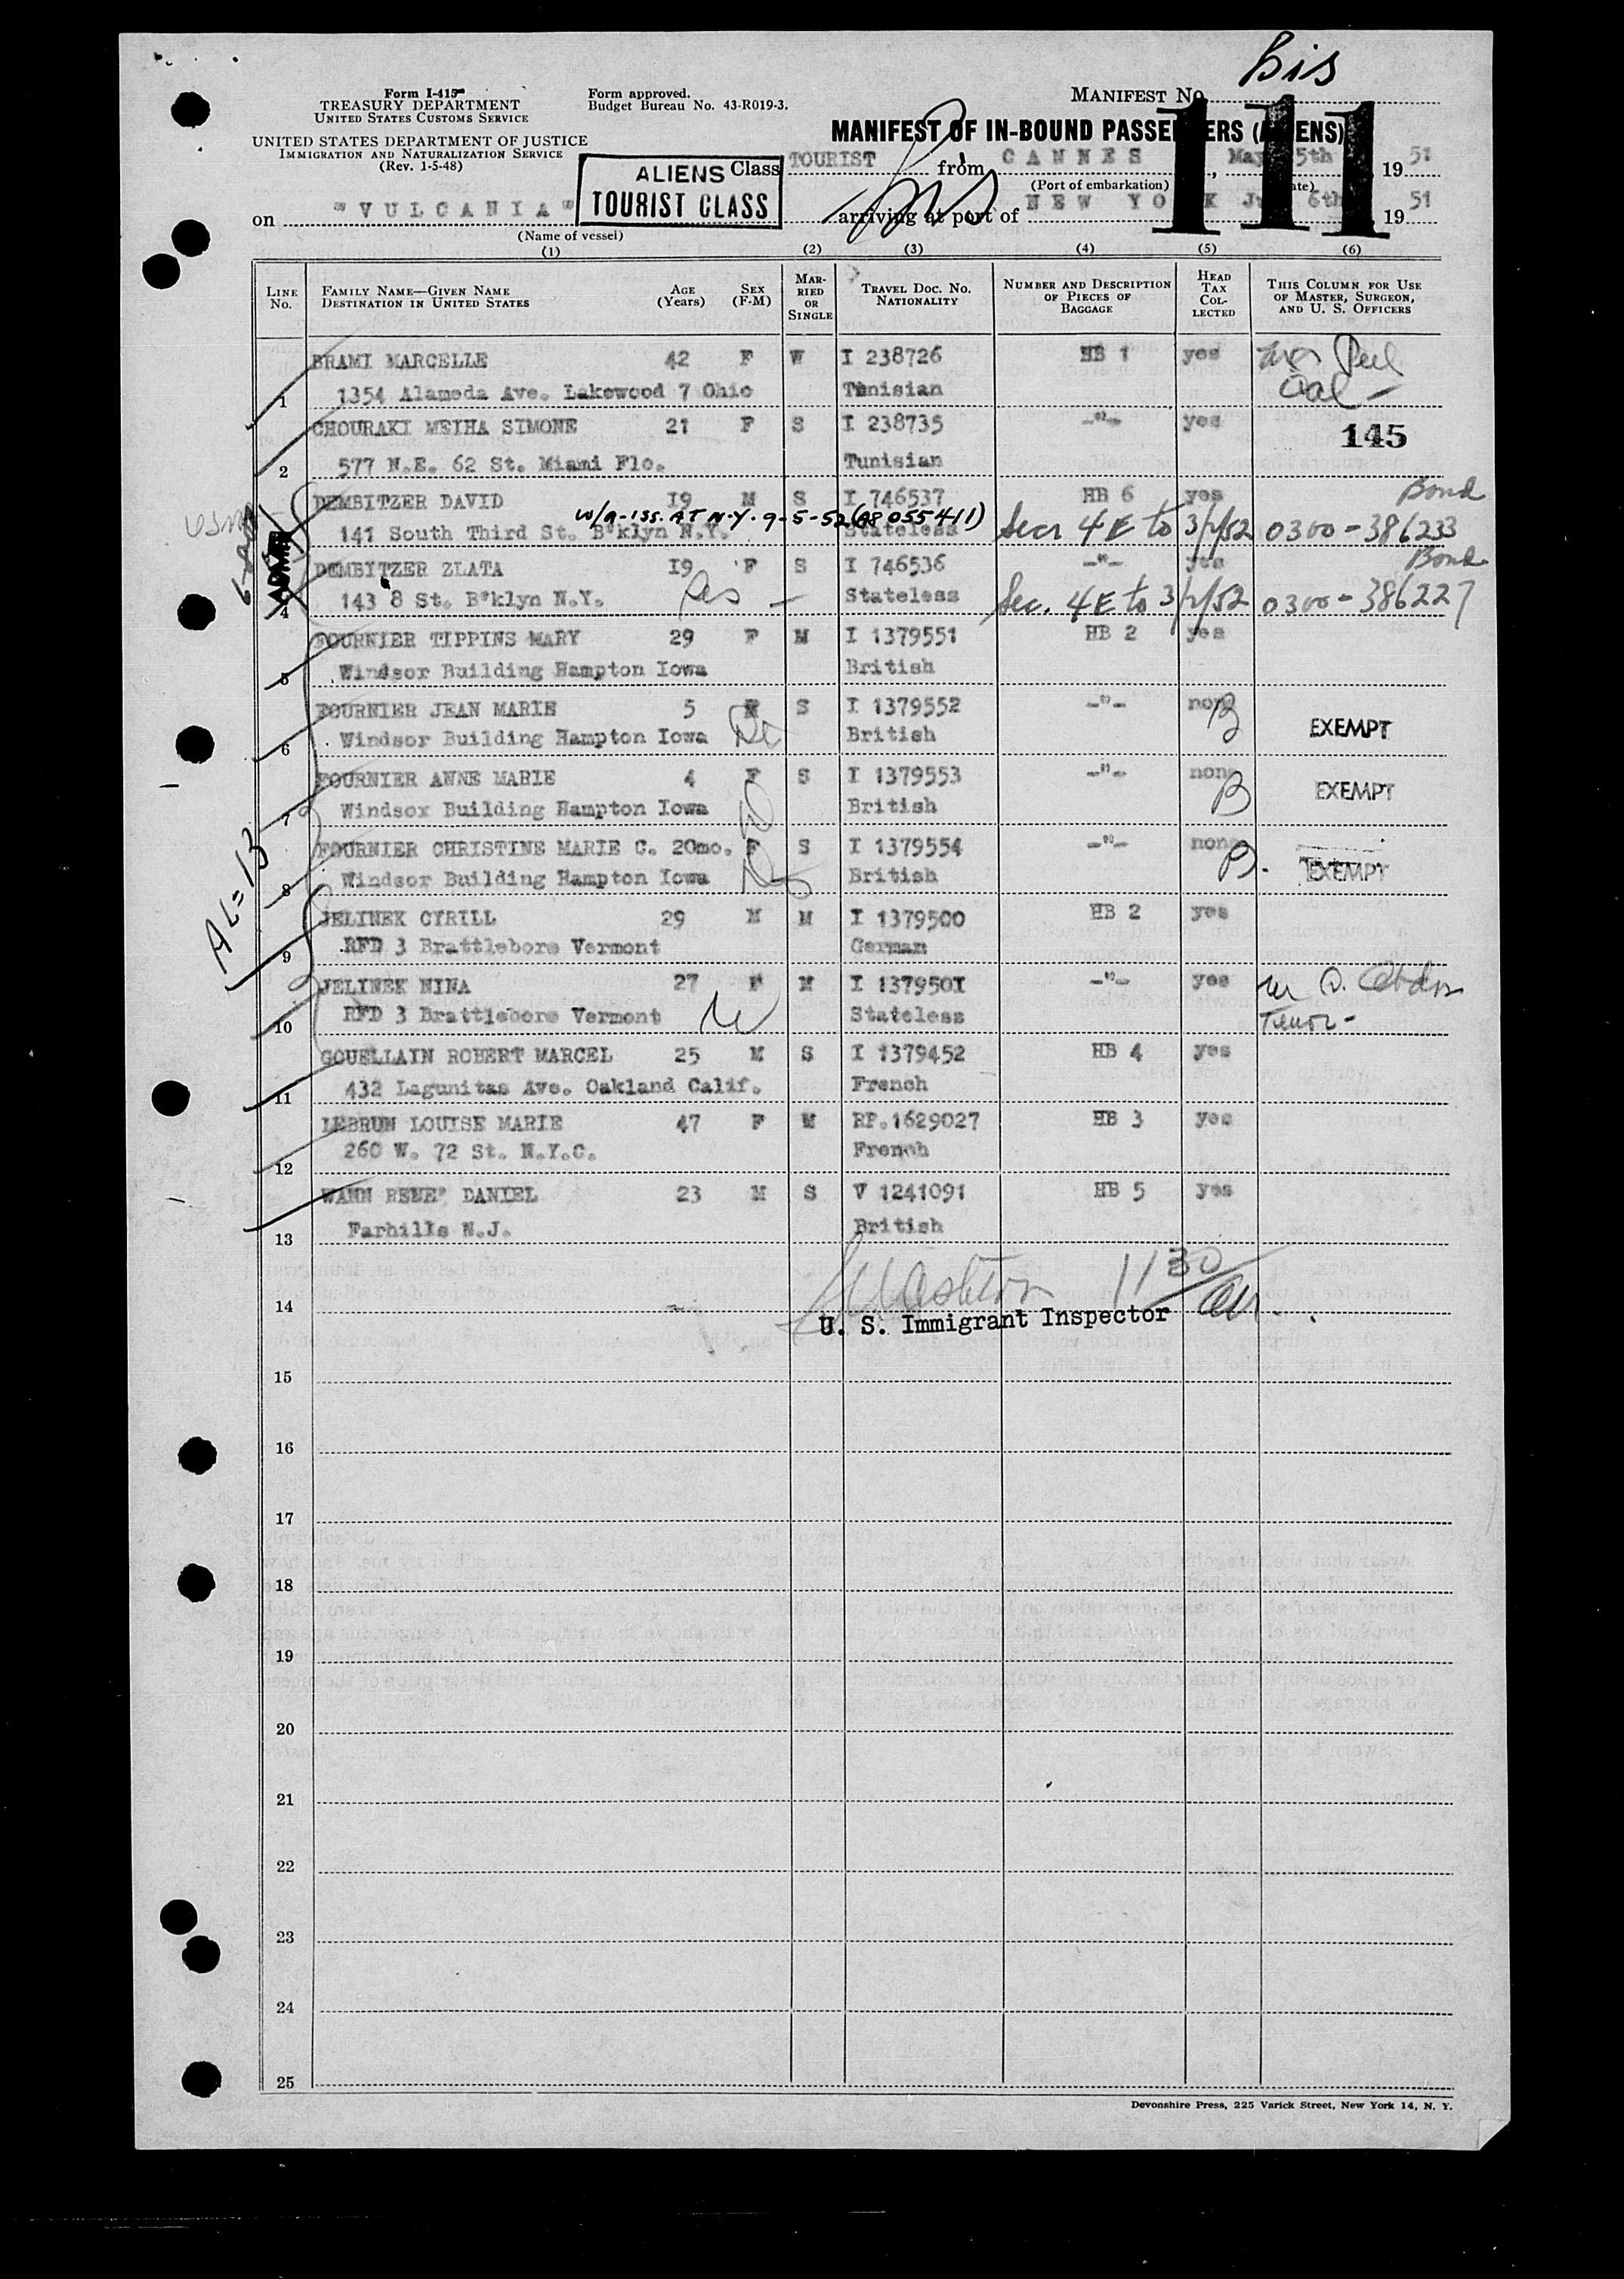 bis
Form I-415
TREASURY DEPARTMENT
UNITED STATES CUSTOMS SERVICE
UNITED STATES DEPARTMENT OF JUSTICE
IMMIGRATION AND NATURALIZATION SERVICE
(Rev. 1-5-48)
Form approved.
Budget Bureau No. 43-R019-3.
MANIFEST No.
111
MANIFEST OF IN-BOUND PASSENGERS (ALIENS)
ALIENS
TOURIST CLASS
Class TOURIST from CANNES, May 5th 1951
(Port of embarkation) (Date)
on "VULCANIA" arriving at port of NEW YORK 6th 1951
(Name of vessel)
(1) (2) (3) (4) (5) (6)
LINE No. FAMILY NAME—GIVEN NAME DESTINATION IN UNITED STATES AGE (Years) SEX (F-M) MARRIED OR SINGLE TRAVEL DOC. NO. NATIONALITY NUMBER AND DESCRIPTION OF PIECES OF BAGGAGE HEAD TAX COLLECTED THIS COLUMN FOR USE OF MASTER, SURGEON, AND U. S. OFFICERS
BRAMI MARCELLE 42 F W I 238726 HB 1 yes
1 1354 Alameda Ave. Lakewood 7 Ohio Tunisian
CHOURAKI MEIHA SIMONE 21 F S I 238735 -"- yes 145
2 577 N.E. 62 St. Miami Flo. Tunisian
DEMBITZER DAVID 19 M S I 746537 HB 6 yes Bond
W/A-ISS. AT N.Y. 9-5-52 (A8 055411)
141 South Third St. B'klyn N.Y. Stateless Sec. 4E to 3/1/52 0300-386233
DEMBITZER ZLATA 19 F S I 746536 -"- yes Bond
4 143 8 St. B'klyn N.Y. Stateless Sec. 4E to 3/1/52 0300-386227
FOURNIER TIPPINS MARY 29 F M I 1379551 HB 2 yes
5 Windsor Building Hampton Iowa British
FOURNIER JEAN MARIE 5 S I 1379552 -"- none B EXEMPT
6 Windsor Building Hampton Iowa British
FOURNIER ANNE MARIE 4 F S I 1379553 -"- none B EXEMPT
7 Windsox Building Hampton Iowa British
FOURNIER CHRISTINE MARIE C. 20mo. F S I 1379554 -"- none B. EXEMPT
8 Windsor Building Hampton Iowa British
AL=13
JELINEK CYRILL 29 M M I 1379500 HB 2 yes
9 RFD 3 Brattleboro Vermont German
JELINEK NINA 27 F M I 1379501 -"- yes
10 RFD 3 Brattleboro Vermont Stateless
GOUELLAIN ROBERT MARCEL 25 M S I 1379452 HB 4 yes
11 432 Lagunitas Ave. Oakland Calif. French
LEBRUN LOUISE MARIE 47 F M RP.1629027 HB 3 yes
12 260 W. 72 St. N.Y.C. French
WANN RENE' DANIEL 23 M S V 1241091 HB 5 yes
13 Farhills N.J. British
1130
14 U. S. Immigrant Inspector
15
16
17
18
19
20
21
22
23
24
25
Devonshire Press, 225 Varick Street, New York 14, N. Y.